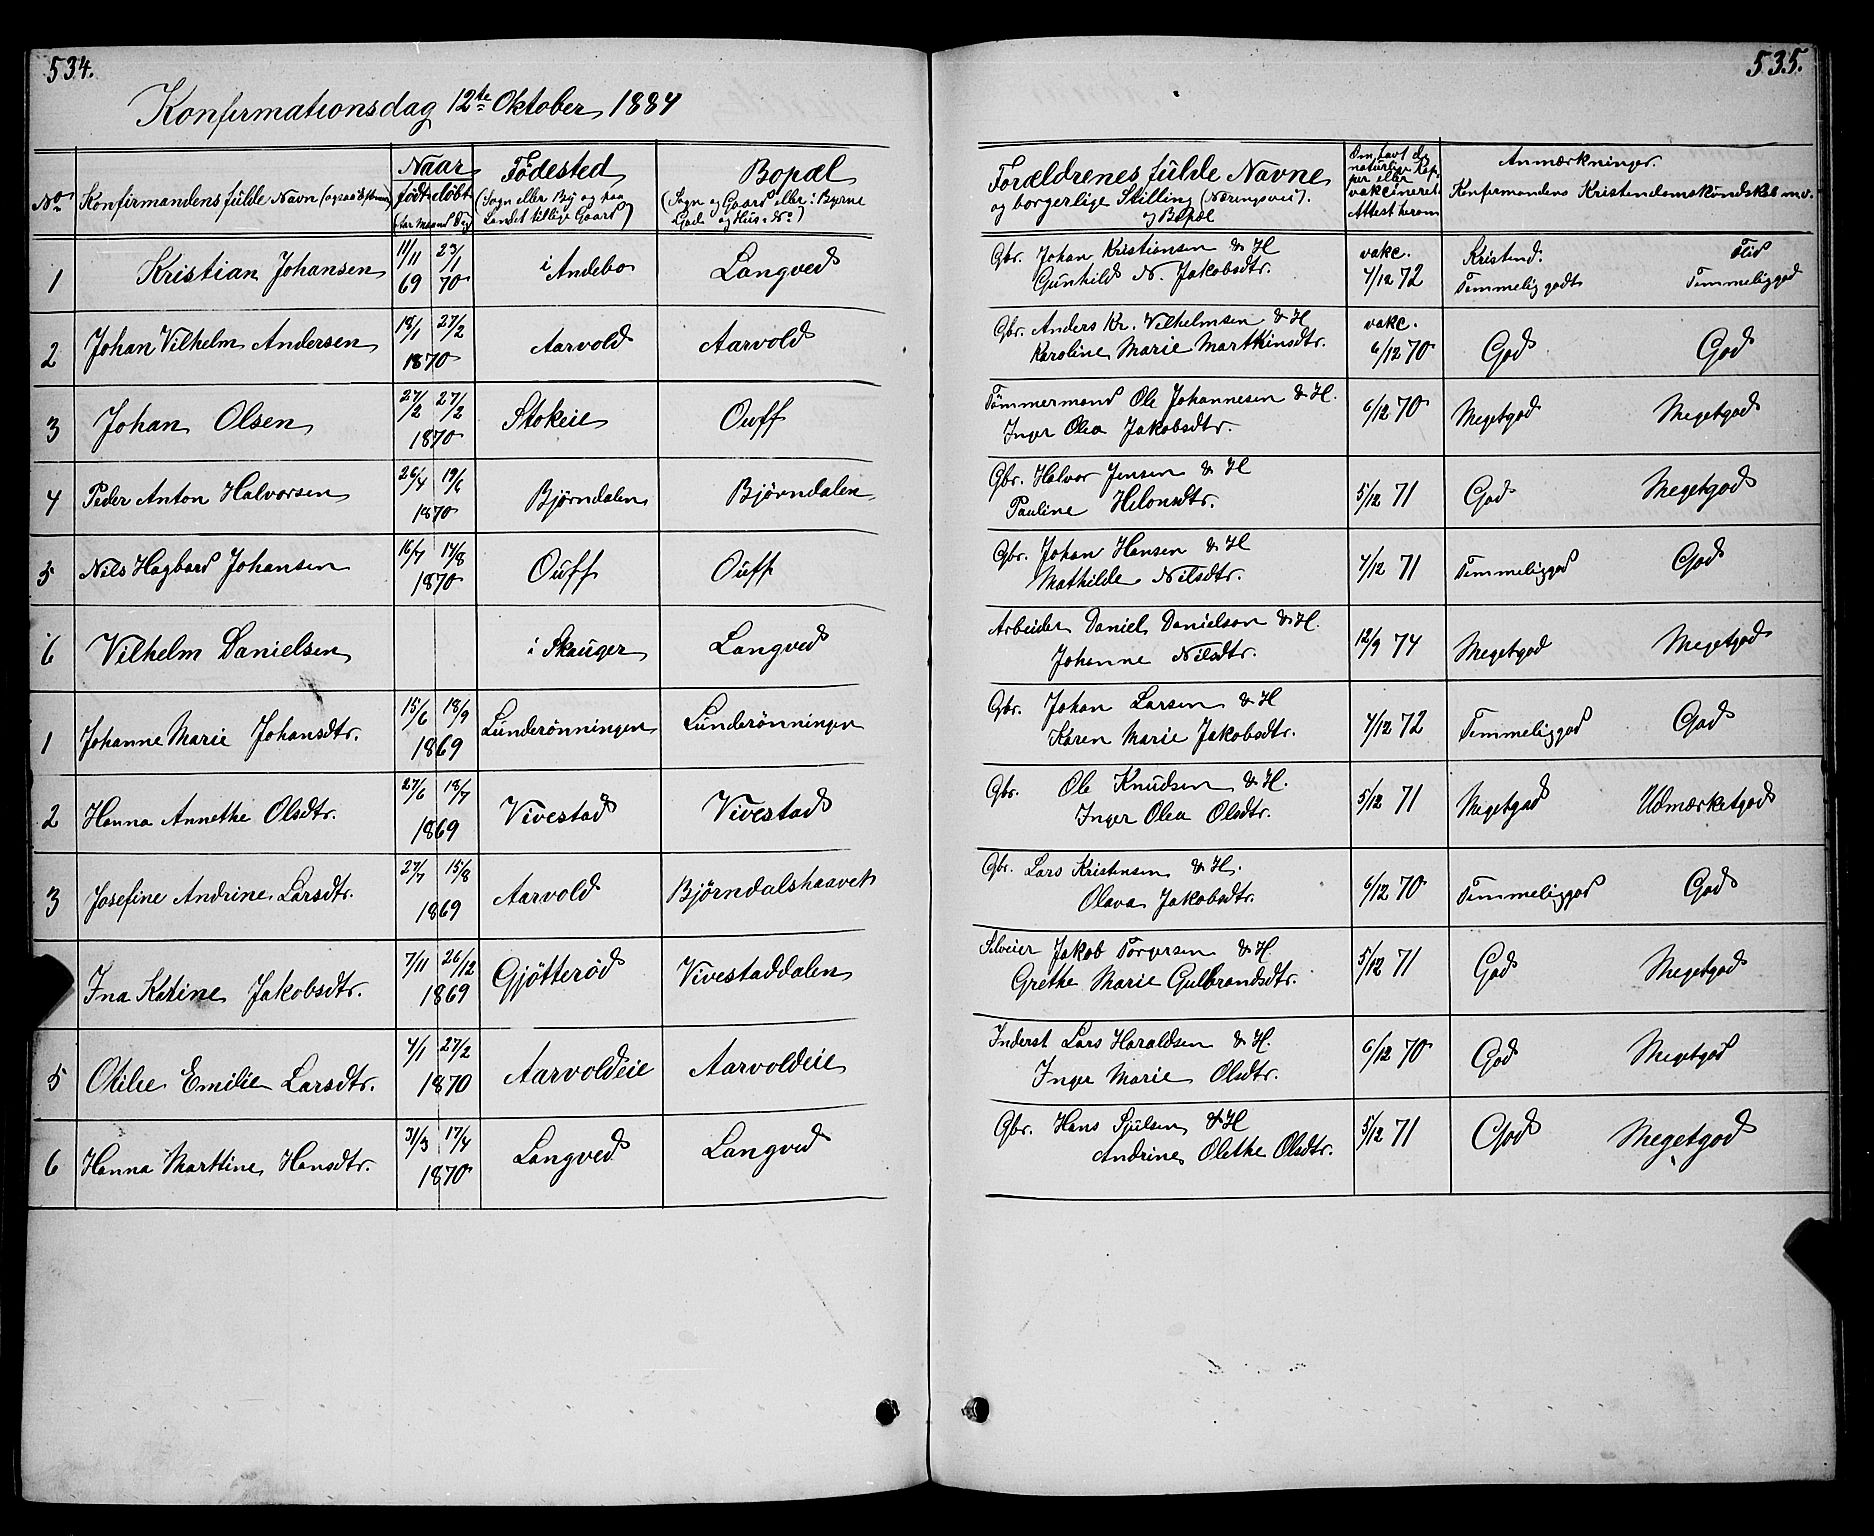 534.
Konfirmationsdag 12te Oktober 1884
No. Konfirmandens fulde Navn Naar født døbt (Aar Maaned Dag) Fødested (Sogn eller By og paa Landet tillige Gaard) Bopæl (Sogn og Gaard eller i Byerne Gade og Hus No)
1 Kristian Johansen 11/11 69 23/1 70 i Andebo Langved
2 Johan Vilhelm Andersen 18/1 27/2 1870 Aarvold Aarvold
3 Johan Olsen 27/2 27/2 1870 Stokeie Ouff
4 Peder Anton Halvorsen 26/4 19/6 1870 Bjørndalen Bjørndalen
5 Nils Hagbard Johansen 16/7 14/8 1870 Ouff Ouff
6 Vilhelm Danielsen i Skauger Langved
1 Johanne Marie Johansdtr. 15/6 18/9 1869 Lunderönningen Lunderönningen
2 Hanna Annethe Olsdtr. 27/6 18/7 1869 Vivestad Vivestad
3 Josefine Andrine Larsdtr. 27/7 15/8 1869 Aarvold Bjørndalshaavet
Ina Katine Jakobsdtr. 7/11 26/12 1869 Gjötterød Vivestaddalen
5 Otilie Emilie Larsdtr. 4/1 27/2 1870 Aarvoldeie Aarvoldeie
6 Hanna Marttine Hansdtr. 31/3 17/4 1870 Langved Langved
535.
Forældrenes fulde Navne og borgerlige Stilling (Næringsvei). og Bopæl Om havt de naturlige Kopper eller vakcineret Attest herom Anmærkninger. Konfirmandens Kristendomskundskab m.v.
Gbr. Johan Kristiansen & H vakc. Kristend. Flid
Gunhild N. Jakobsdtr. 4/12 72 Temmelig godt Temmeliggod
Gbr. Anders Kr. Vilhelmsen & H vakc.
Karoline Marie Martkinsdtr. 6/12 70 God God
Tömmermand Ole Johannesen & H. 6/12 70 Megetgod Megetgod
Inger Olea Jakobsdtr.
Gbr. Halvor Jensen & H
Pauline Helonsdtr. 5/12 71 God Megetgod
Gbr. Johan Hansen & H
Mathilde Nilsdtr. 4/12 71 Temmeliggod God
Arbeider Daniel Danielson & H.
Johanne Nilsdtr. 12/9 74 Megetgod Megetgod
Gbr. Johan Larsen & H
Karen Marie Jakobsdtr. 4/12 72 Temmeliggod God
Gbr. Ole Knudsen & H.
Inger Olea Olsdtr. 5/12 71 Megetgod Udmærketgod
Gbr. Lars Kristensen & H.
Olava Jakobsdtr. 6/12 70 Temmeliggod God
Selveier Jakob Torgersen & H.
Grethe Marie Gulbrandsdtr. 5/12 71 God Megetgod
Inderst Lars Haraldsen & H.
Inger Marie Olsdtr. 6/12 70 God Megetgod
Gbr. Hans Sjulsen & H
Andrine Olethe Olsdtr. 5/12 71 God Megetgod